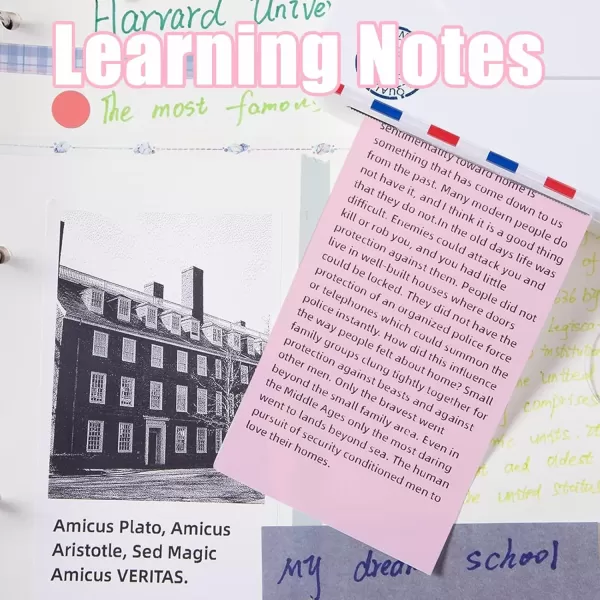 Harvard Univer
Learning Notes
The most famou
sentimentality toward home is
something that has come down to us
from the past. Many modern people do
not have it, and I think it is a good thing
that they do not.In the old days life was
difficult. Enemies could attack you and
kill or rob you, and you had little
protection against them. People did not
live in well-built houses where doors
could be locked. They did not have the
protection of an organized police force
or telephones which could summon the
police instantly. How did this influence
the way people felt about home? Small
family groups clung tightly together for
protection against beasts and against
other men. Only the bravest went
beyond the small family area. Even in
the Middle Ages only the most daring
went to lands beyond sea. The human
pursuit of security conditioned men to
love their homes.
of
636 by
institution
the united
comprises
units.
and oldest
the united states
Amicus Plato, Amicus
Aristotle, Sed Magic
Amicus VERITAS.
My dream school